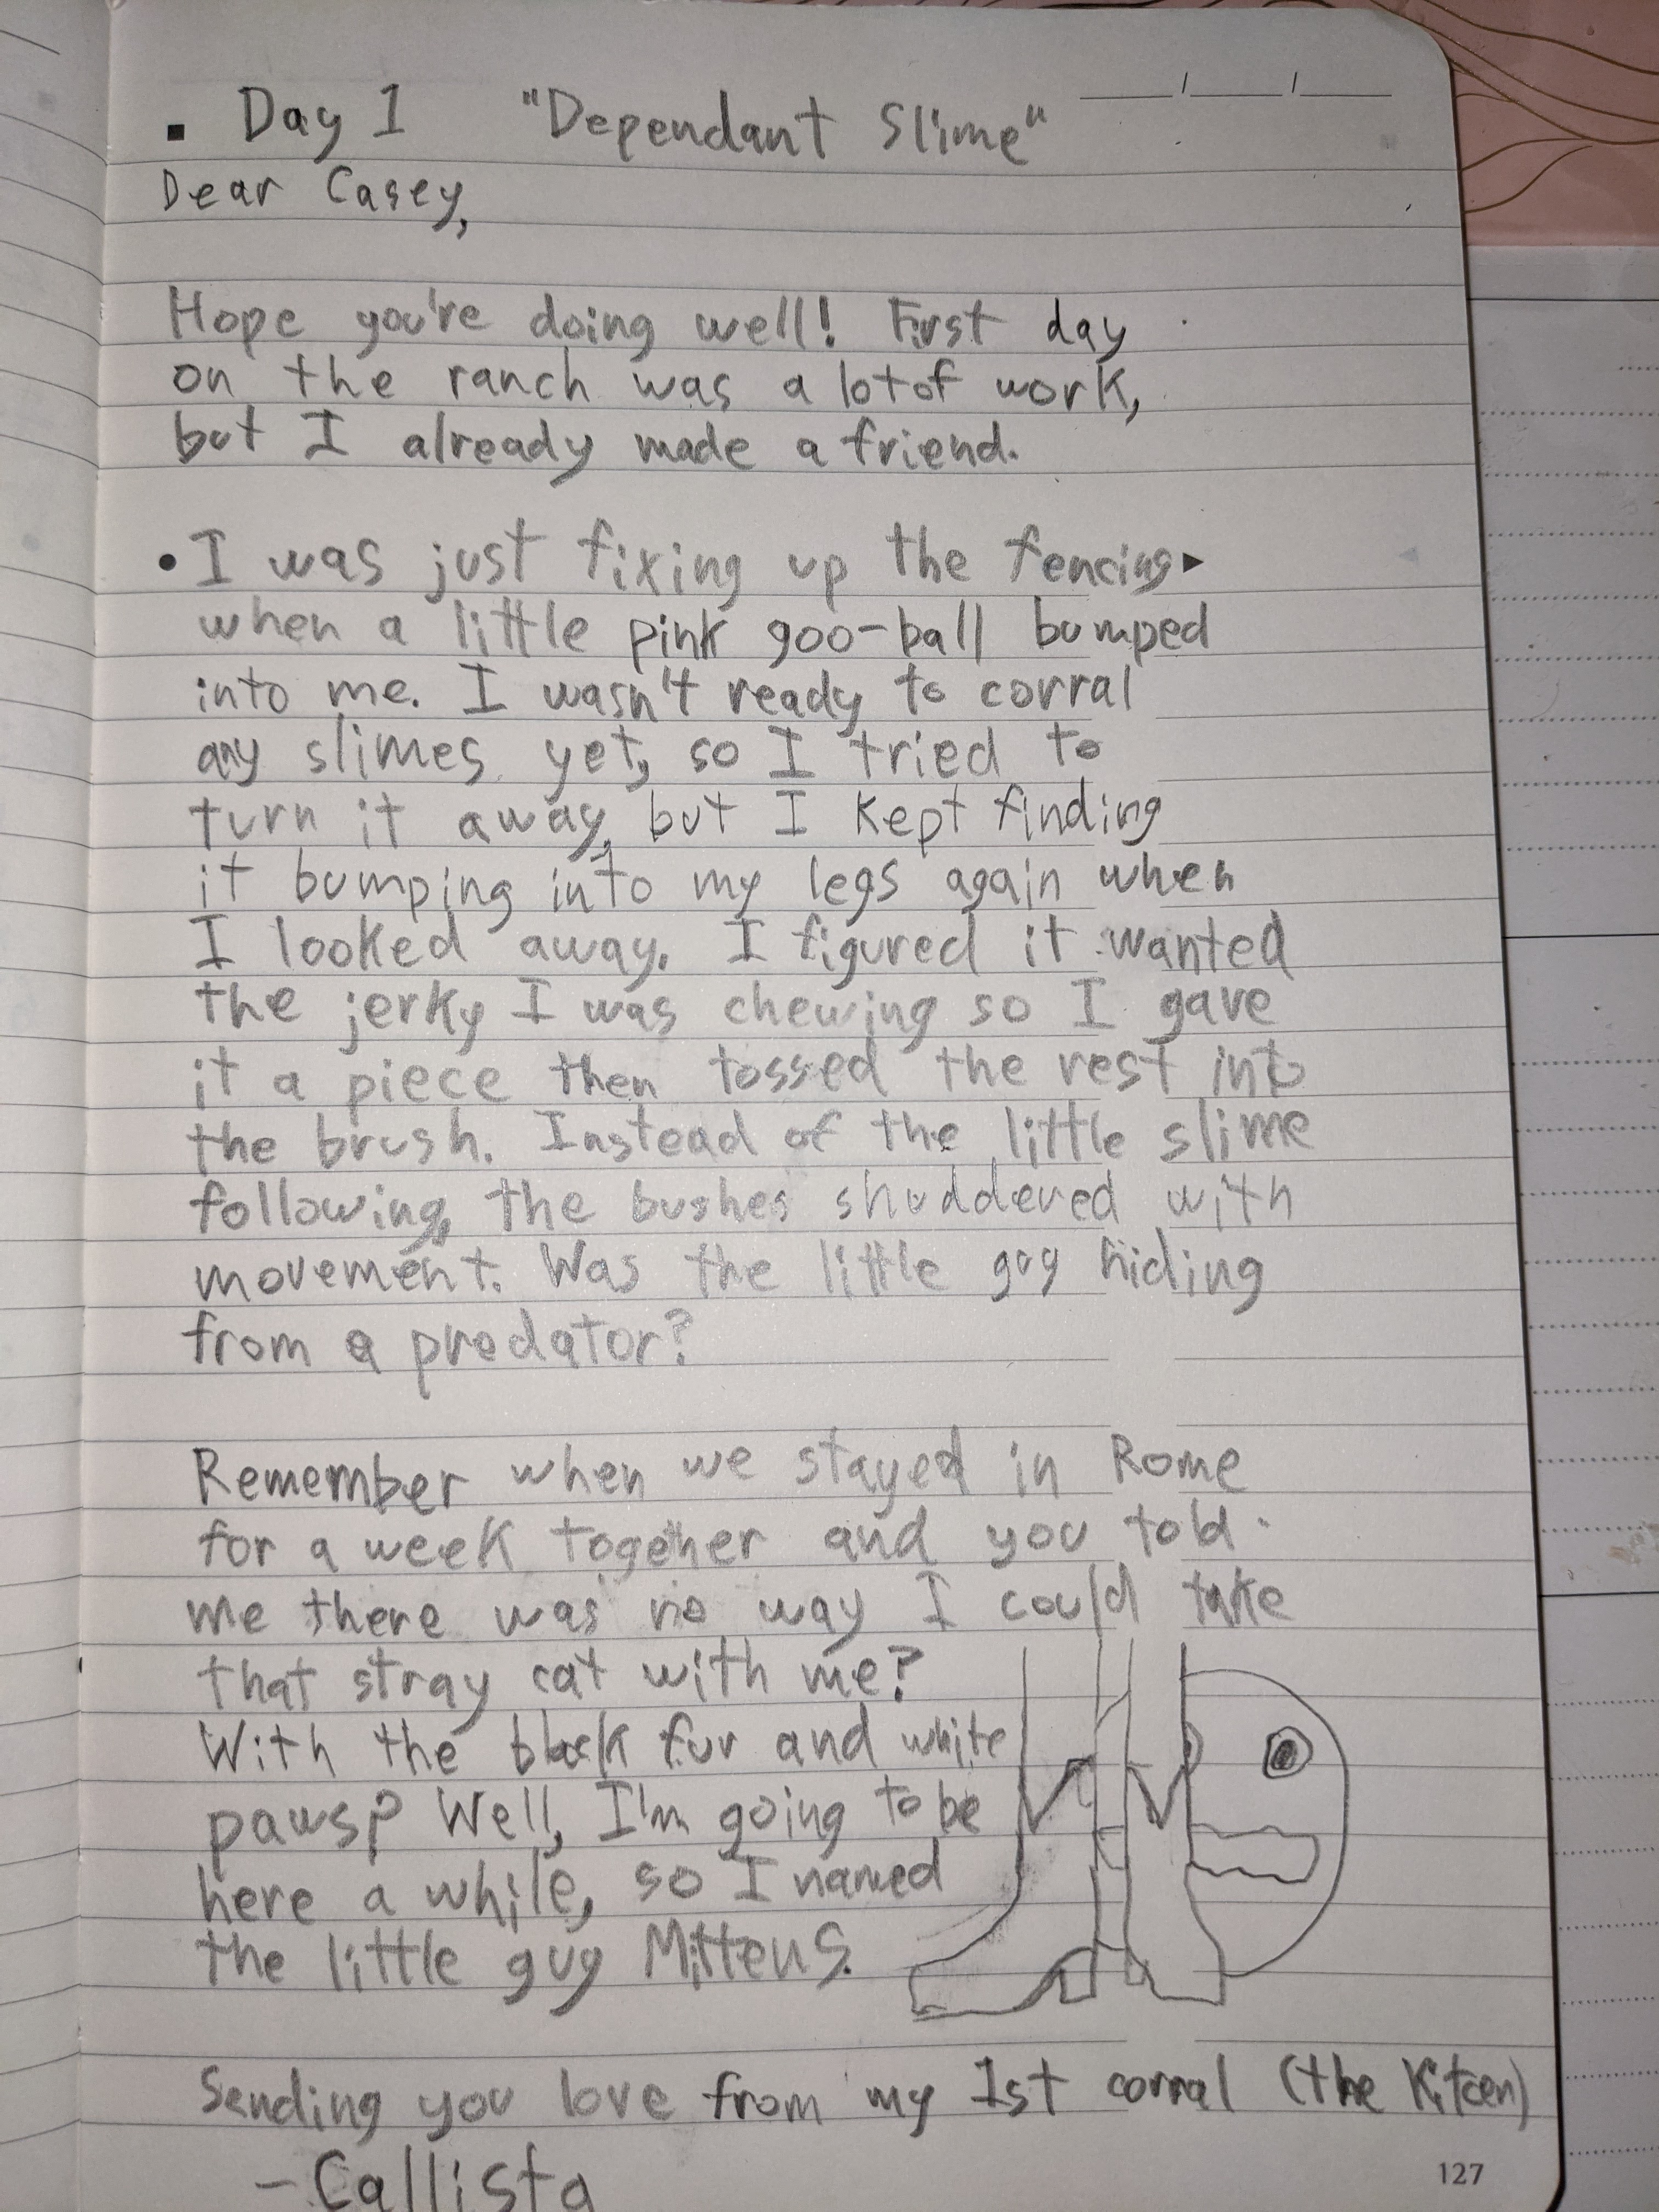 ▪ Day 1 "Dependant Slime" __/__/__
Dear Casey,
Hope you're doing well! First day
on the ranch was a lotof work,
but I already made a friend.
• I was just fixing up the fencing
when a little pink goo-ball bumped
into me. I wasn't ready to corral
any slimes yet, so I tried to
turn it away, but I kept finding
it bumping into my legs again when
I looked away. I figured it wanted
the jerky I was chewing so I gave
it a piece then tossed the rest into
the brush. Instead of the little slime
following, the bushes shuddered with
movement. Was the little guy hiding
from a predator?
Remember when we stayed in Rome
for a week together and you told
me there was no way I could take
that stray cat with me?
With the black fur and white
paws? Well, I'm going to be
here a while, so I named
the little guy Mittens.
Sending you love from my 1st corral (the Kitcen)
-Callista
127